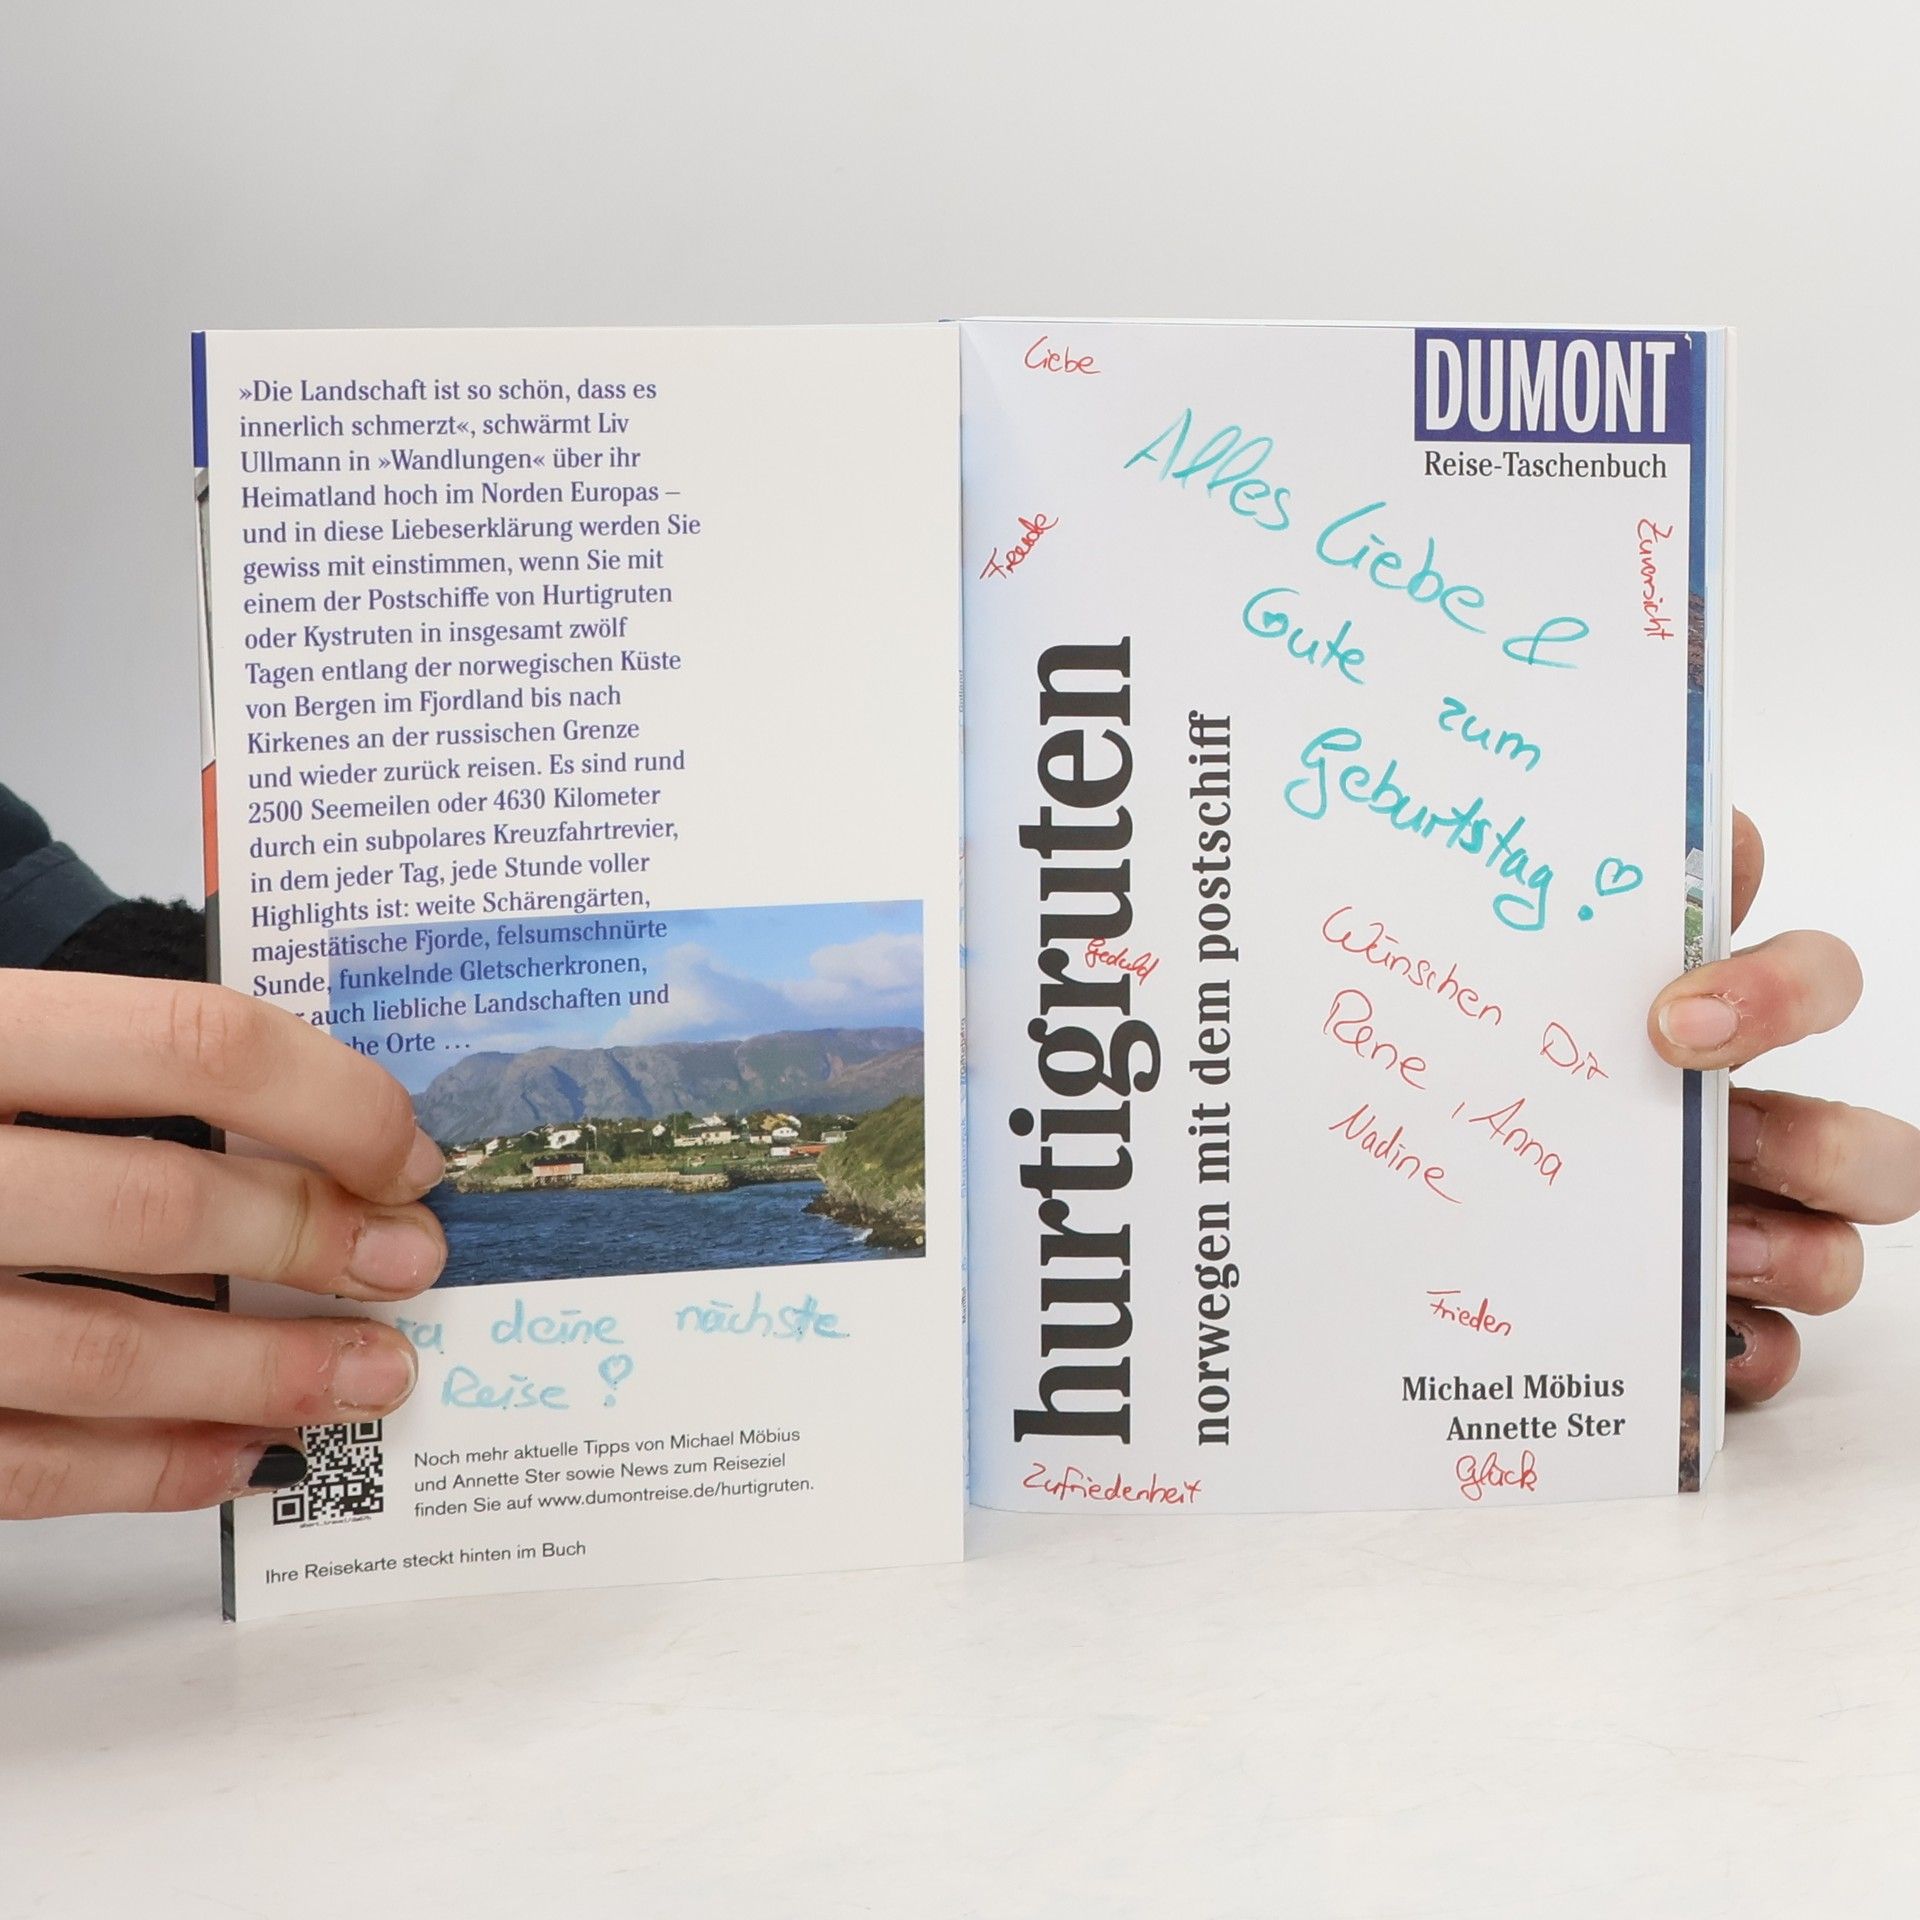 »Die Landschaft ist so schön, dass es
innerlich schmerzt«, schwärmt Liv
Ullmann in »Wandlungen« über ihr
Heimatland hoch im Norden Europas –
und in diese Liebeserklärung werden Sie
gewiss mit einstimmen, wenn Sie mit
einem der Postschiffe von Hurtigruten
oder Kystruten in insgesamt zwölf
Tagen entlang der norwegischen Küste
von Bergen im Fjordland bis nach
Kirkenes an der russischen Grenze
und wieder zurück reisen. Es sind rund
2500 Seemeilen oder 4630 Kilometer
durch ein subpolares Kreuzfahrtrevier,
in dem jeder Tag, jede Stunde voller
Highlights ist: weite Schärengärten,
majestätische Fjorde, felsumschnürte
Sunde, funkelnde Gletscherkronen,
auch liebliche Landschaften und
Orte …
deine nächste
Reise!
Noch mehr aktuelle Tipps von Michael Möbius
und Annette Ster sowie News zum Reiseziel
finden Sie auf www.dumontreise.de/hurtigruten.
Ihre Reisekarte steckt hinten im Buch
Liebe
DUMONT
Reise-Taschenbuch
Alles Liebe &
Gute zum
Geburtstag!
Freude
Zuversicht
hurtigruten
norwegen mit dem postschiff
Geduld
Wünschen Dir
Rene, Anna
Nadine
Frieden
Michael Möbius
Annette Ster
Glück
Zufriedenheit